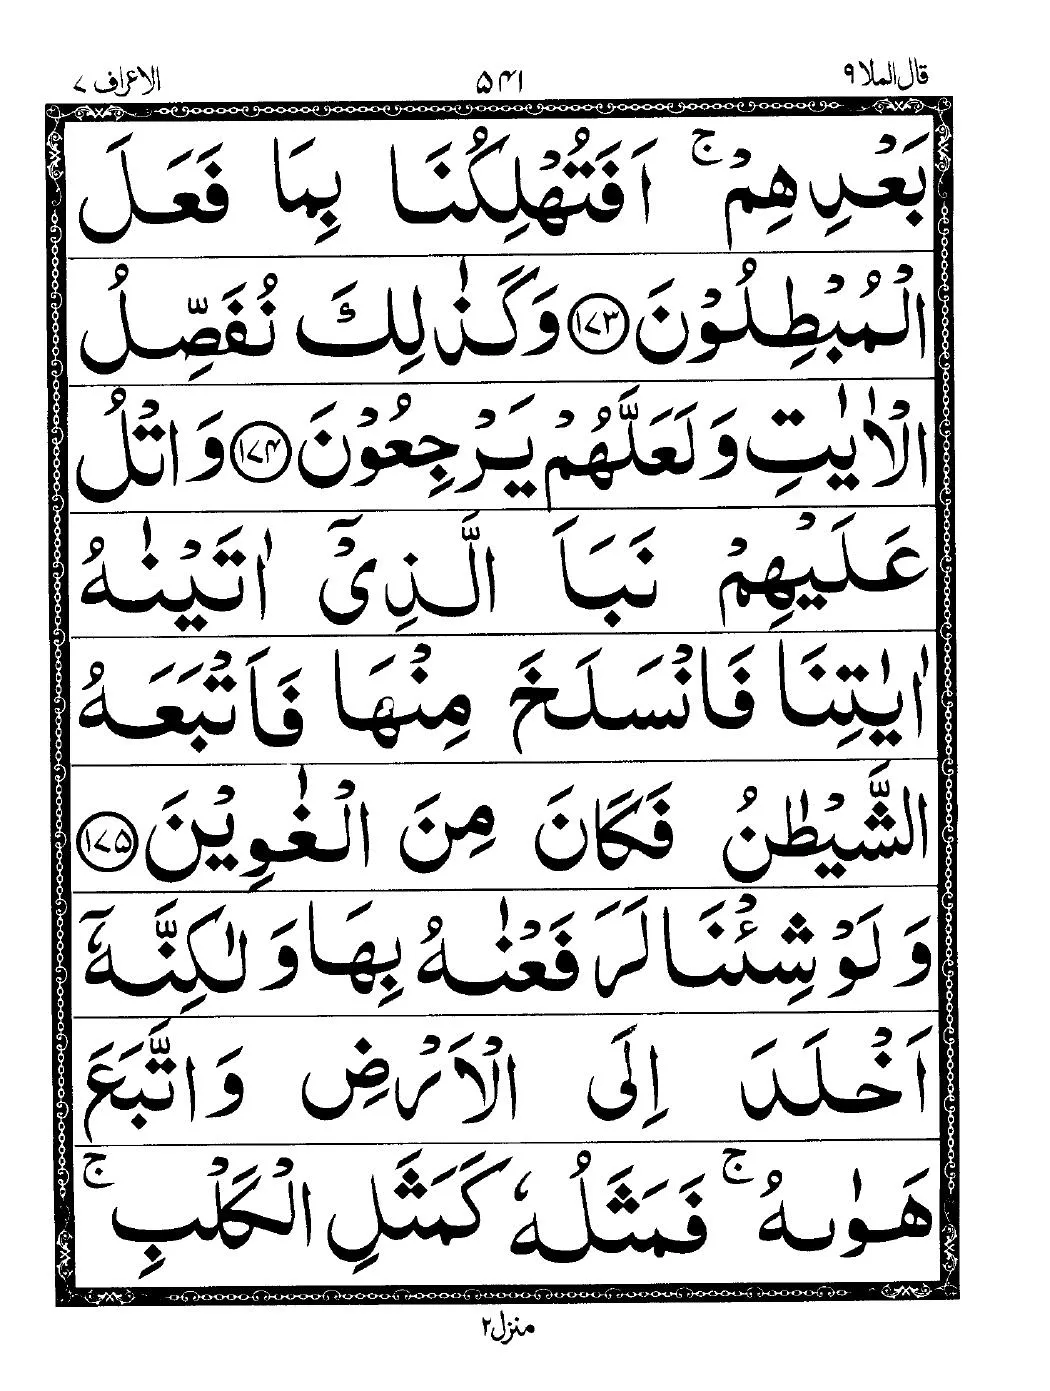 قال الملا ۹ ۵۴۱ الاعراف ۷
بَعْدِهِمْ ۚ اَفَتُهْلِكُنَا بِمَا فَعَلَ
الْمُبْطِلُوْنَ ﴿۱۷۳﴾ وَكَذٰلِكَ نُفَصِّلُ
الْاٰيٰتِ وَلَعَلَّهُمْ يَرْجِعُوْنَ ﴿۱۷۴﴾ وَاتْلُ
عَلَيْهِمْ نَبَاَ الَّذِيْۤ اٰتَيْنٰهُ
اٰيٰتِنَا فَانْسَلَخَ مِنْهَا فَاَتْبَعَهُ
الشَّيْطٰنُ فَكَانَ مِنَ الْغٰوِيْنَ ﴿۱۷۵﴾
وَلَوْ شِئْنَا لَرَفَعْنٰهُ بِهَا وَلٰكِنَّهٗۤ
اَخْلَدَ اِلَى الْاَرْضِ وَاتَّبَعَ
هَوٰىهُ ۚ فَمَثَلُهٗ كَمَثَلِ الْكَلْبِ ۚ
منزل ۲